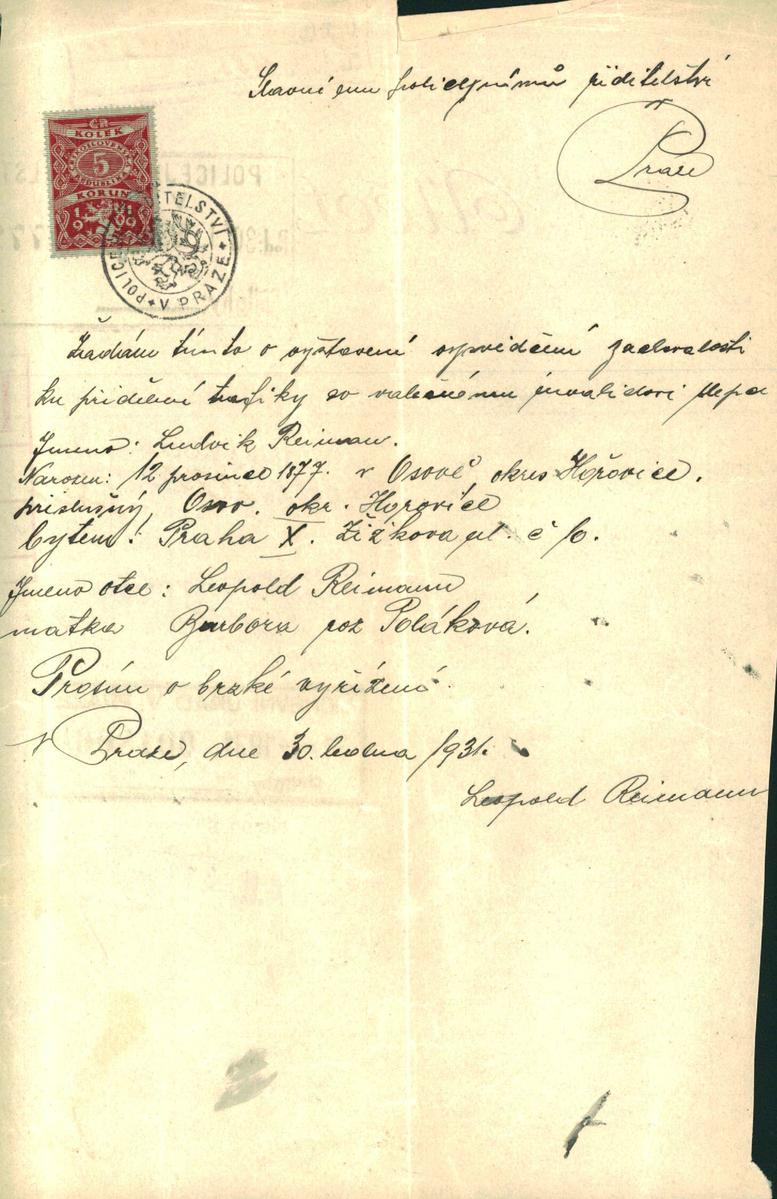 Slavnému policejnímů řiditelství
v Praze
ČR
KOLEK
5
KORUN
19 19
POLICEJNÍ ŘEDITELSTVÍ
* V PRAZE *
Žádám tímto o vystavení zachovalosti
ku přidělení trafiky co válečnému invalidovi
Jmeno: Ludvik Reiman.
Narozen: 12 prosince 1877. v Osově, okres Hořovice.
příslušný, Osov. okr. Hořovice
bytem: Praha X. Žižkova ul. č 6.
Jmeno otce: Leopold Reimann
matka Barbora roz Poláková.
Prosím o brzké vyřízení.
V Praze, dne 30. ledna 1931.
Leopold Reimann